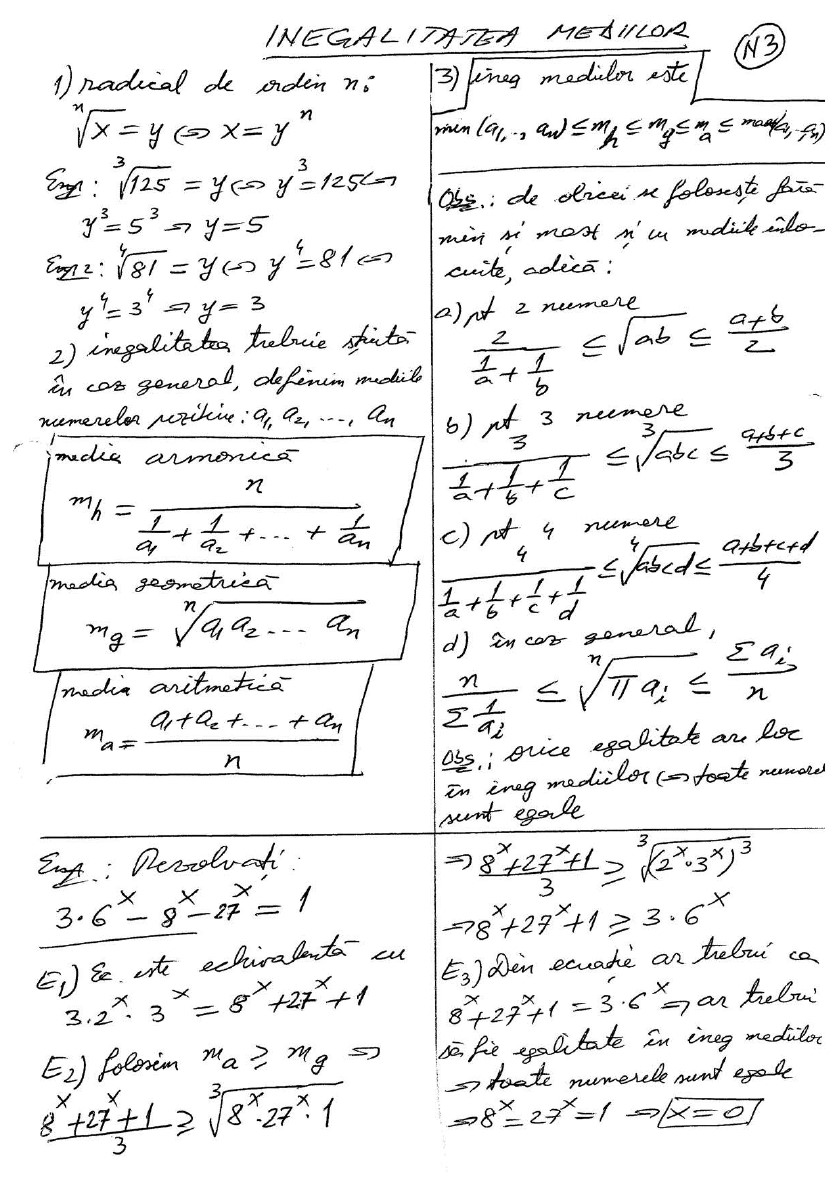 INEGALITATEA MEDIILOR
N3
1) radical de ordin n:
ⁿ√x = y ⇔ x = yⁿ
Exp1: ³√125 = y ⇔ y³ = 125 ⇔
y³ = 5³ ⇒ y = 5
Exp2: ⁴√81 = y ⇔ y⁴ = 81 ⇔
y⁴ = 3⁴ ⇒ y = 3
2) inegalitatea trebuie știută
în caz general, definim mediile
numerelor pozitive: a₁, a₂, ..., aₙ
media armonică
m_h = n / (1/a₁ + 1/a₂ + ... + 1/aₙ)
media geometrică
m_g = ⁿ√(a₁ a₂ ... aₙ)
media aritmetică
m_a = (a₁ + a₂ + ... + aₙ) / n
3) ineg mediilor este
min (a₁, .., aₙ) ≤ m_h ≤ m_g ≤ m_a ≤ max(a₁, .. aₙ)
Obs.: de obicei se folosește fără
min și max și cu mediile înlo-
cuite, adică:
a) pt 2 numere
2 / (1/a + 1/b) ≤ √ab ≤ (a+b)/2
b) pt 3 numere
3 / (1/a + 1/b + 1/c) ≤ ³√abc ≤ (a+b+c)/3
c) pt 4 numere
4 / (1/a + 1/b + 1/c + 1/d) ≤ ⁴√abcd ≤ (a+b+c+d)/4
d) în caz general,
n / (Σ 1/aᵢ) ≤ ⁿ√(Π aᵢ) ≤ (Σ aᵢ)/n
Obs.: orice egalitate are loc
în ineg mediilor ⇔ toate numerele
sunt egale
Exp.: Rezolvați:
3·6ˣ − 8ˣ − 27ˣ = 1
E₁) Ec. este echivalentă cu
3·2ˣ·3ˣ = 8ˣ + 27ˣ + 1
E₂) folosim m_a ≥ m_g ⇒
(8ˣ + 27ˣ + 1)/3 ≥ ³√(8ˣ·27ˣ·1)
⇒ (8ˣ + 27ˣ + 1)/3 ≥ ³√(2ˣ·3ˣ)³
⇒ 8ˣ + 27ˣ + 1 ≥ 3·6ˣ
E₃) Din ecuație ar trebui ca
8ˣ + 27ˣ + 1 = 3·6ˣ ⇒ ar trebui
să fie egalitate în ineg mediilor
⇒ toate numerele sunt egale
⇒ 8ˣ = 27ˣ = 1 ⇒ x = 0